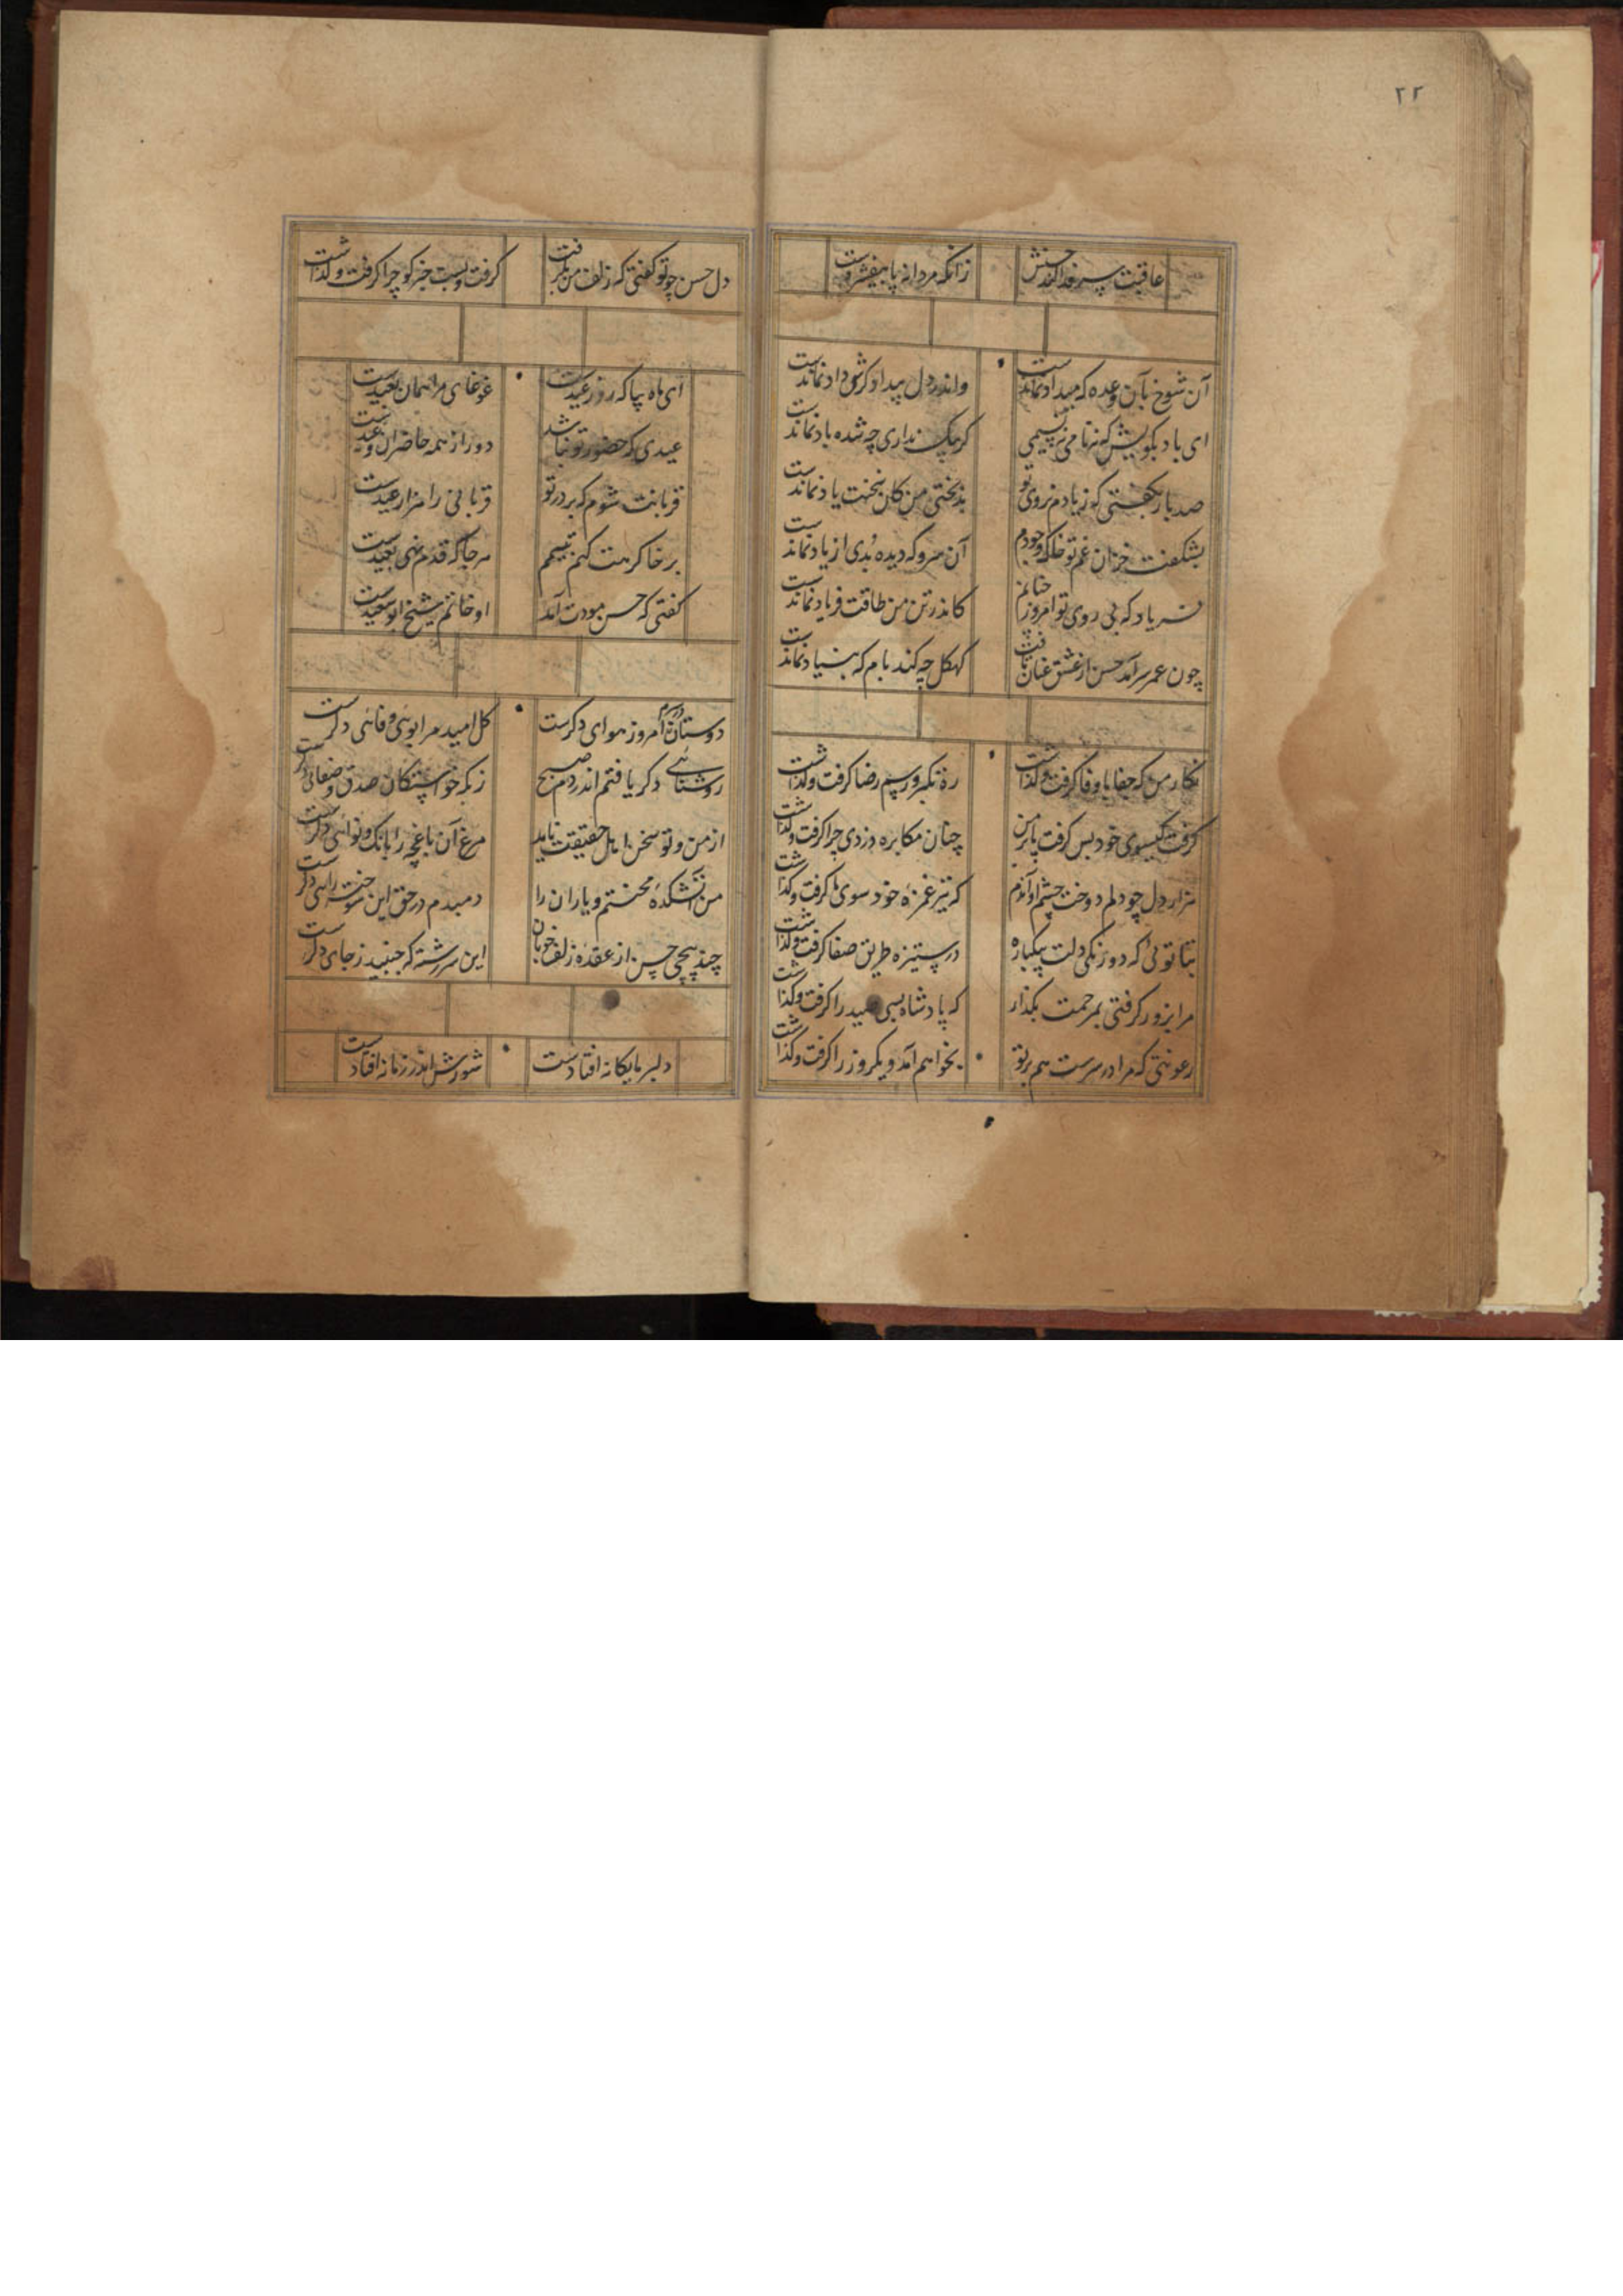 ۲۲
عاقبت سر فدا کند حسنش
زانکه مردانه پا بیفشردست
آن شوخ بآن وعده که میداد نماندست
واندر دل بیداد کرش داد نماندست
ای باد بکویش که نه نامی نه نسیمی
کر پیک نداری چه شده باد نماندست
صد بار بکفتی که ز یادم نروی تو
بدبختی من کان سخنت یاد نماندست
بشکفت خزان غم تو خاک وجودم
آن سرو که دیده بدی از یاد نماندست
فریاد که بی روی تو امروز چنانم
کاندر تن من طاقت فریاد نماندست
چون عمر سر آمد حسن از عشق عنان تافت
کهکل چه کند بام که بنیاد نماندست
نکار من که جفا یا وفا کرفت و کذاشت
ره تکبر و رسم رضا کرفت و کذاشت
کرفت کیسوی خود بس کرفت با بر من
چنان مکابره دزدی چرا کرفت و کذاشت
هزار دل چو دلم دوخت چشم او آندم
که تیر غمزه خود سوی ما کرفت و کذاشت
بتا توئی که دو زنکی دلت بیکباره
در ستیزه طریق صفا کرفت و کذاشت
مرا بزور کرفتی بمرحمت بکذار
که پادشاه بسی صید را کرفت و کذاشت
رعونتی که مرا در سرست هم بر تو
بخواهم آمد و یکروز را کرفت و کذاشت
دل حسن چو تو کفتی که زلف من بکرفت
کرفت و بست خبر کو چرا کرفت و کذاشت
ای ماه بیا که روز عیدست
غوغای مرا همان بعیدست
عیدی که حضور تو نباشد
دور از همه حاضران وعیدست
قربانت شوم که بر در تو
قربانی را هزار عیدست
برخاک رهت کنم تیمم
هر جا که قدم نهی بعیدست
کفتی که حسن مودت آمد
او خاتم شیخ ابو سعیدست
دوستان در سرم امروز هوای دکرست
کل امید مرا بوئی وفائی دکرست
روشنائی دکر یافتم اندر دم صبح
زنکه خواستکان صدق و صفائی دکرست
از من و تو سخن اهل حقیقت ناید
مرغ آن باغچه را بانک و نوائی دکرست
من آتشکده محنتم و یاران را
دمبدم در حق این سوخته رائی دکرست
چند پیچی حسن از عقده زلف خوبان
این سررشته که جنبید ز جای دکرست
دلبر ما یکانه افتادست
شورش اندر زمانه افتادست